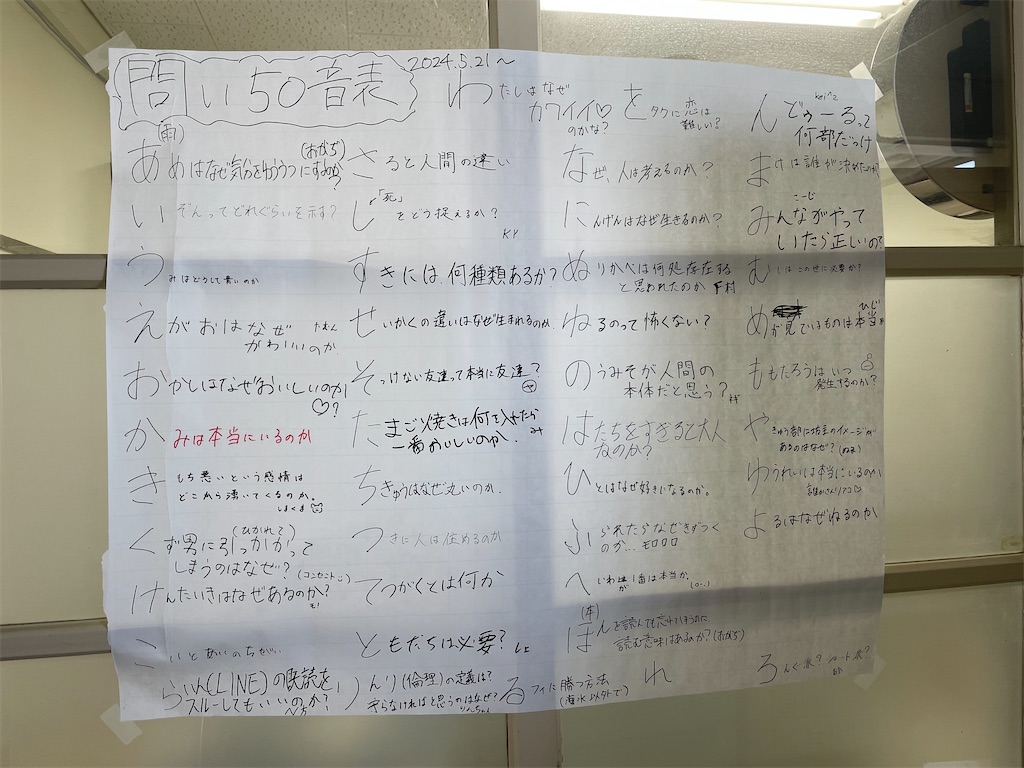 問い50音表
2024.5.21〜
(雨)
あめはなぜ気分をゆううつにするのか?
(おかち)
いぞんってどれぐらいを示す?
うみはどうして青いのか
えがおはなぜ
かわいいのか
おかしはなぜおいしいのか♡?
かみは本当にいるのか
きもち悪いという感情は
どこから湧いてくるのか。
しまくま
(ひかれて)
くず男に引っかかって
しまうのはなぜ?(コンセント)
けんたいきはなぜあるのか?
こいとあいのちがい
さると人間の違い
し「死」をどう捉えるか?
KY
すきには何種類あるか?
せいかくの違いはなぜ生まれるのか
そっけない友達って本当に友達?
たまご焼きは何で入れたら
一番おいしいのか、
み
ちきゅうはなぜ丸いのか.
つきに人は住めるのか
てつがくとは何か
ともだちは必要?
わたしはなぜ
カワイイ♡
のかな?
をタクに恋は
難しい?
kei^2
んどぅーるって
何部だっけ
なぜ、人は考えるのか?
にんげんはなぜ生きるのか?
ぬりかべは何処存在する
と思われたのか 下村
ねるのって怖くない?
のうみそが人間の
本体だと思う?
はたちをすぎると大人
なのか?
ひとはなぜ好きになるのか。
ふられたらなぜきずつく
のか…モロロロ
へいわが1番は本当か.
(本)
ほんを読んでも忘れてしまうのに
読む意味はあるか?(おかち)
まけは誰が決めたのか
こーじ
みんながやって
いたら正しいの?
むしはこの世に必要か?
めが見ているものは本当か
ももたろうはいつ
発生するのか?
やきゅう部に坊主のイメージが
あるのはなぜ?(ぬま)
ゆうれいは本当にいるのか
よるはなぜねるのか
らいん(LINE)の既読を
スルーしてもいいのか?
りんり(倫理)の定義は?
きらなければと思うのはなぜ?
りんちゃん
るフィに勝つ方法
(海水以外で)
れ
ろんぐ派?ショート派?